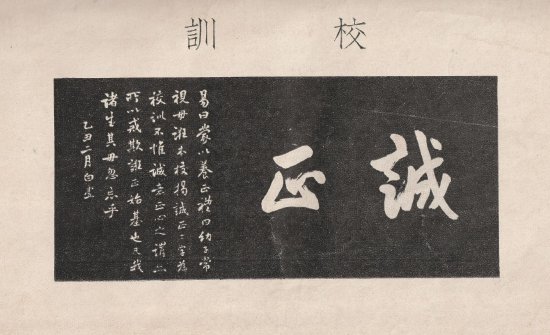 校訓
誠正
易曰蒙以養正禮曰幼子常
視毋誑本校揭誠正二字為
校訓不惟誠意正心之謂亦
所以戒欺誑正始基也凡我
諸生其毋忽忘乎
乙丑二月白